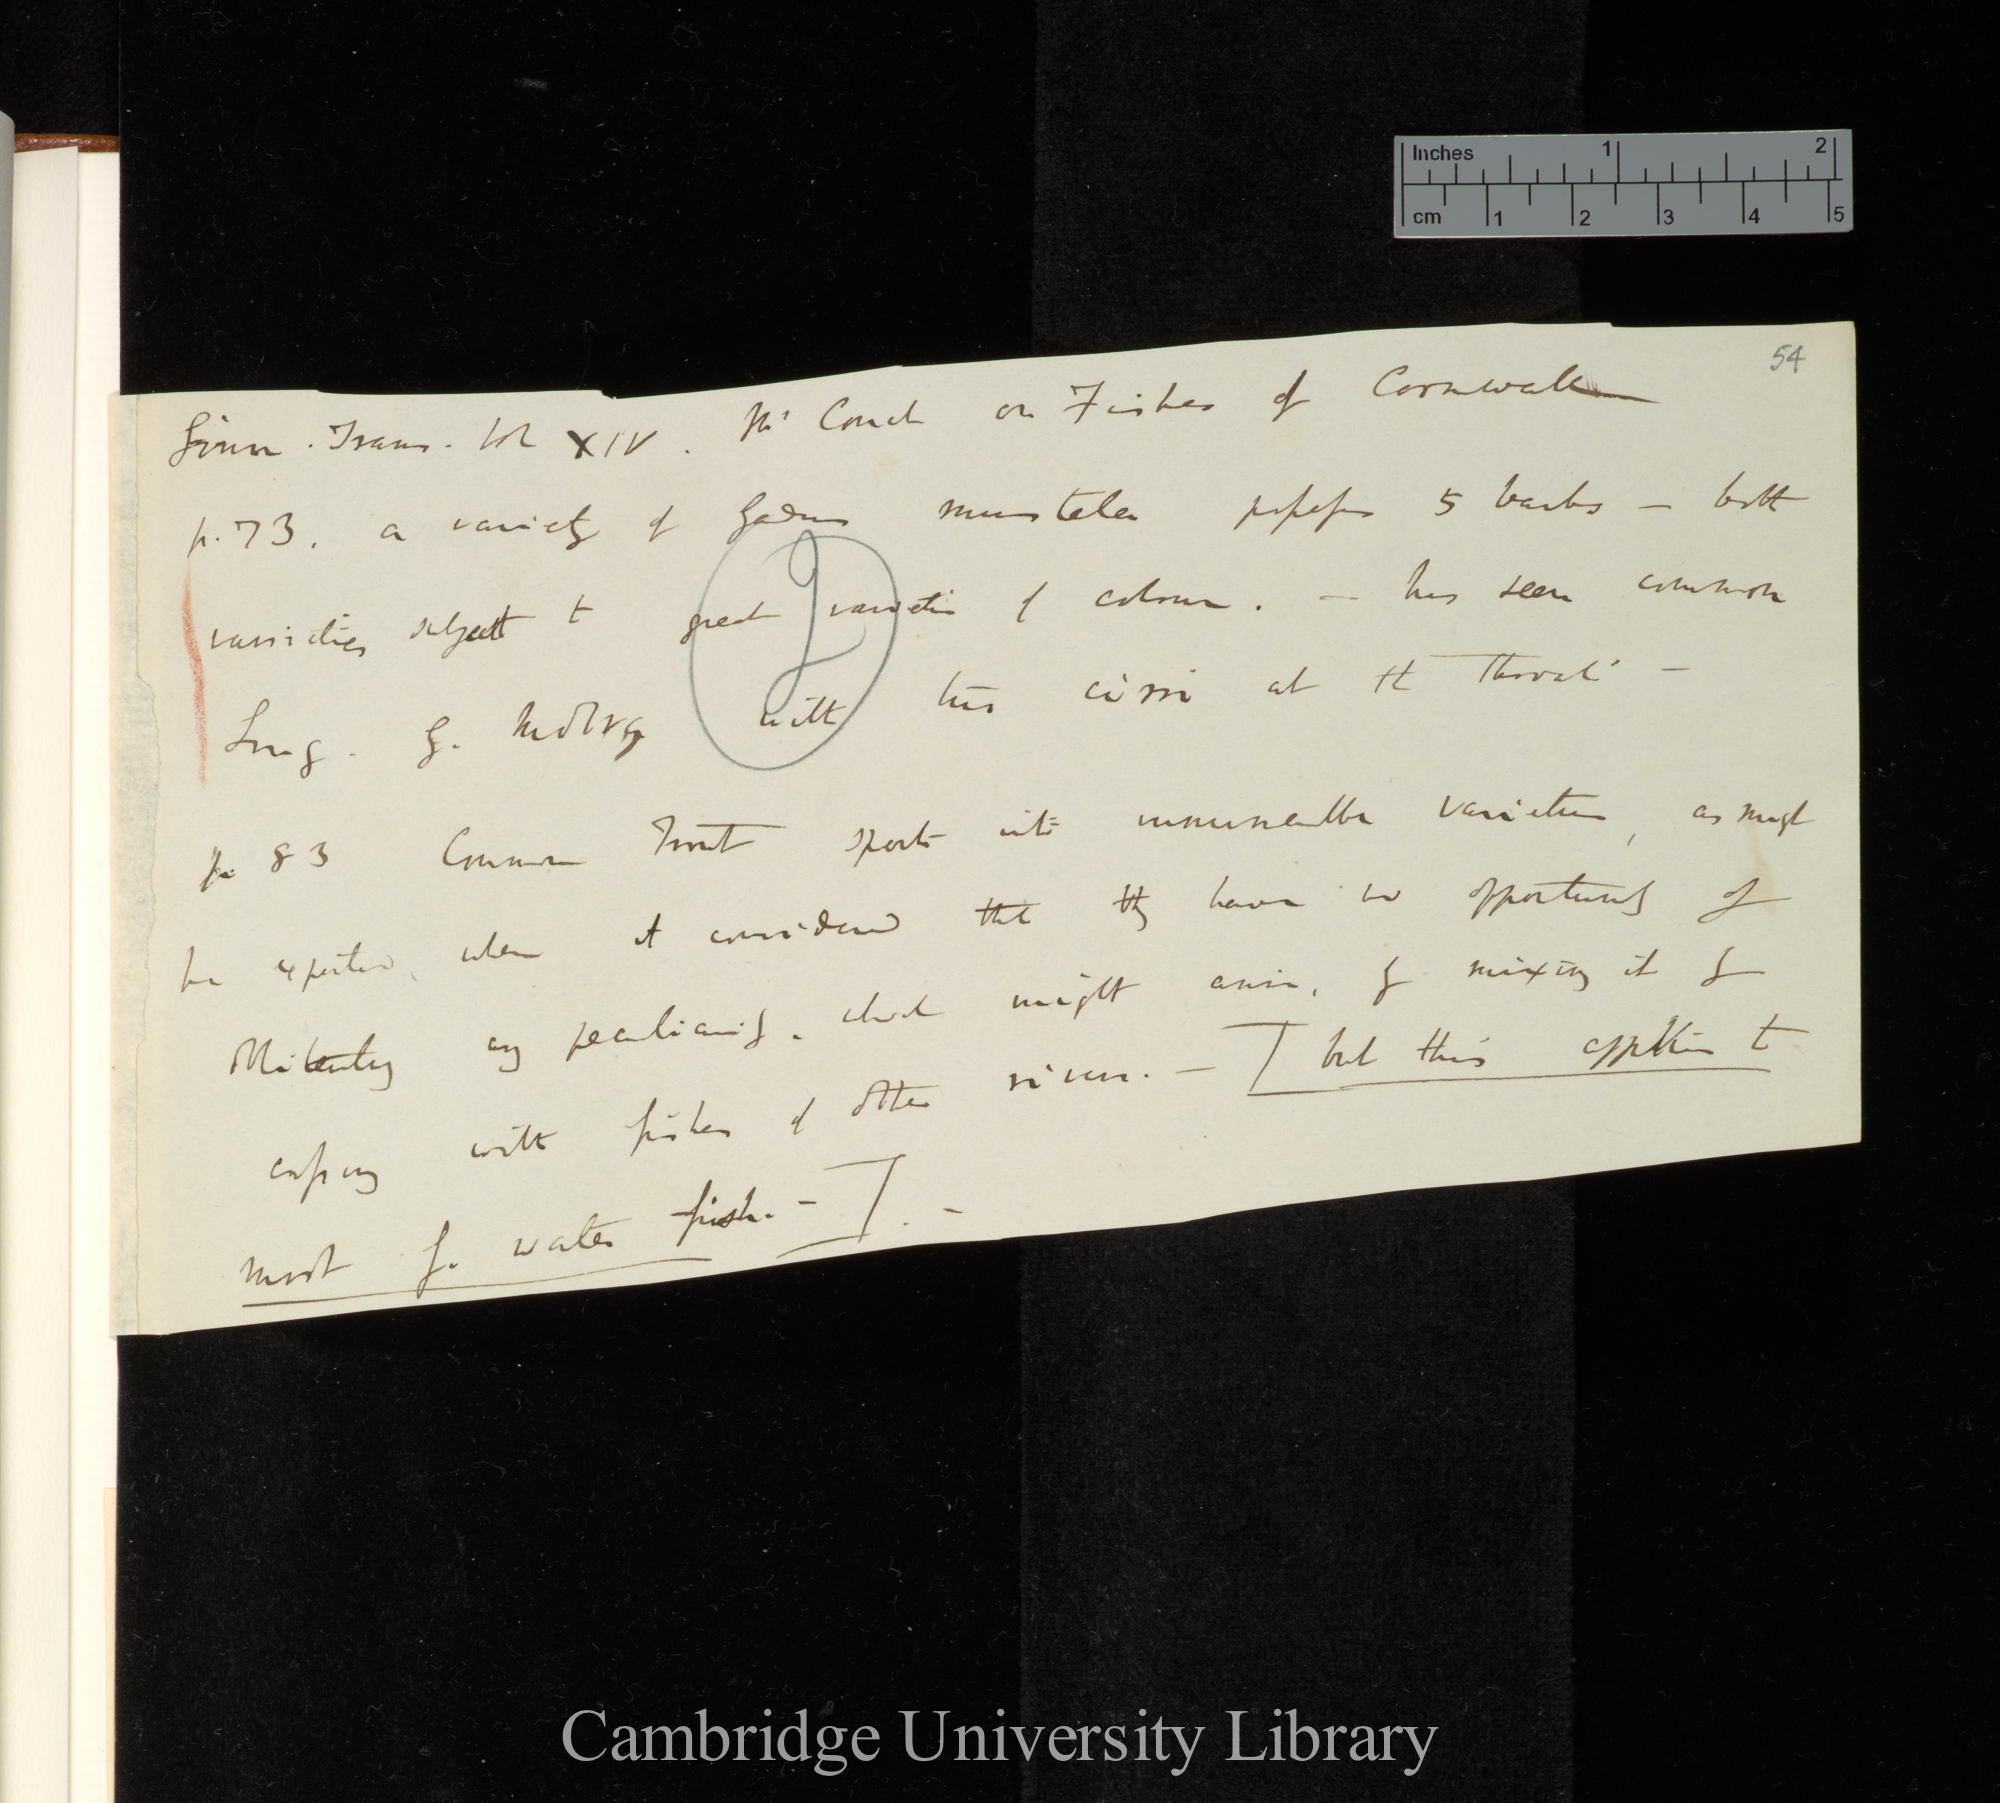 Inches 1 2
cm 1 2 3 4 5
54
Linn. Trans. Vol XIV. Mr Couch on Fishes of Cornwall
p. 73. a variety of Gadus mustela possesses 5 barbs — both
varieties subject to great varieties of colour. — has seen common
Ling. G. Molva with two cirri at the throat —
2
p. 83 Common Trout sports into innumerable varieties, as might
be expected, when it considered that they have no opportunity of
obliterating any peculiarity, which might arise, by mixing it by
crossing with fishes of other rivers. — [but this applies to
most f. water fish. —]. —
Cambridge University Library